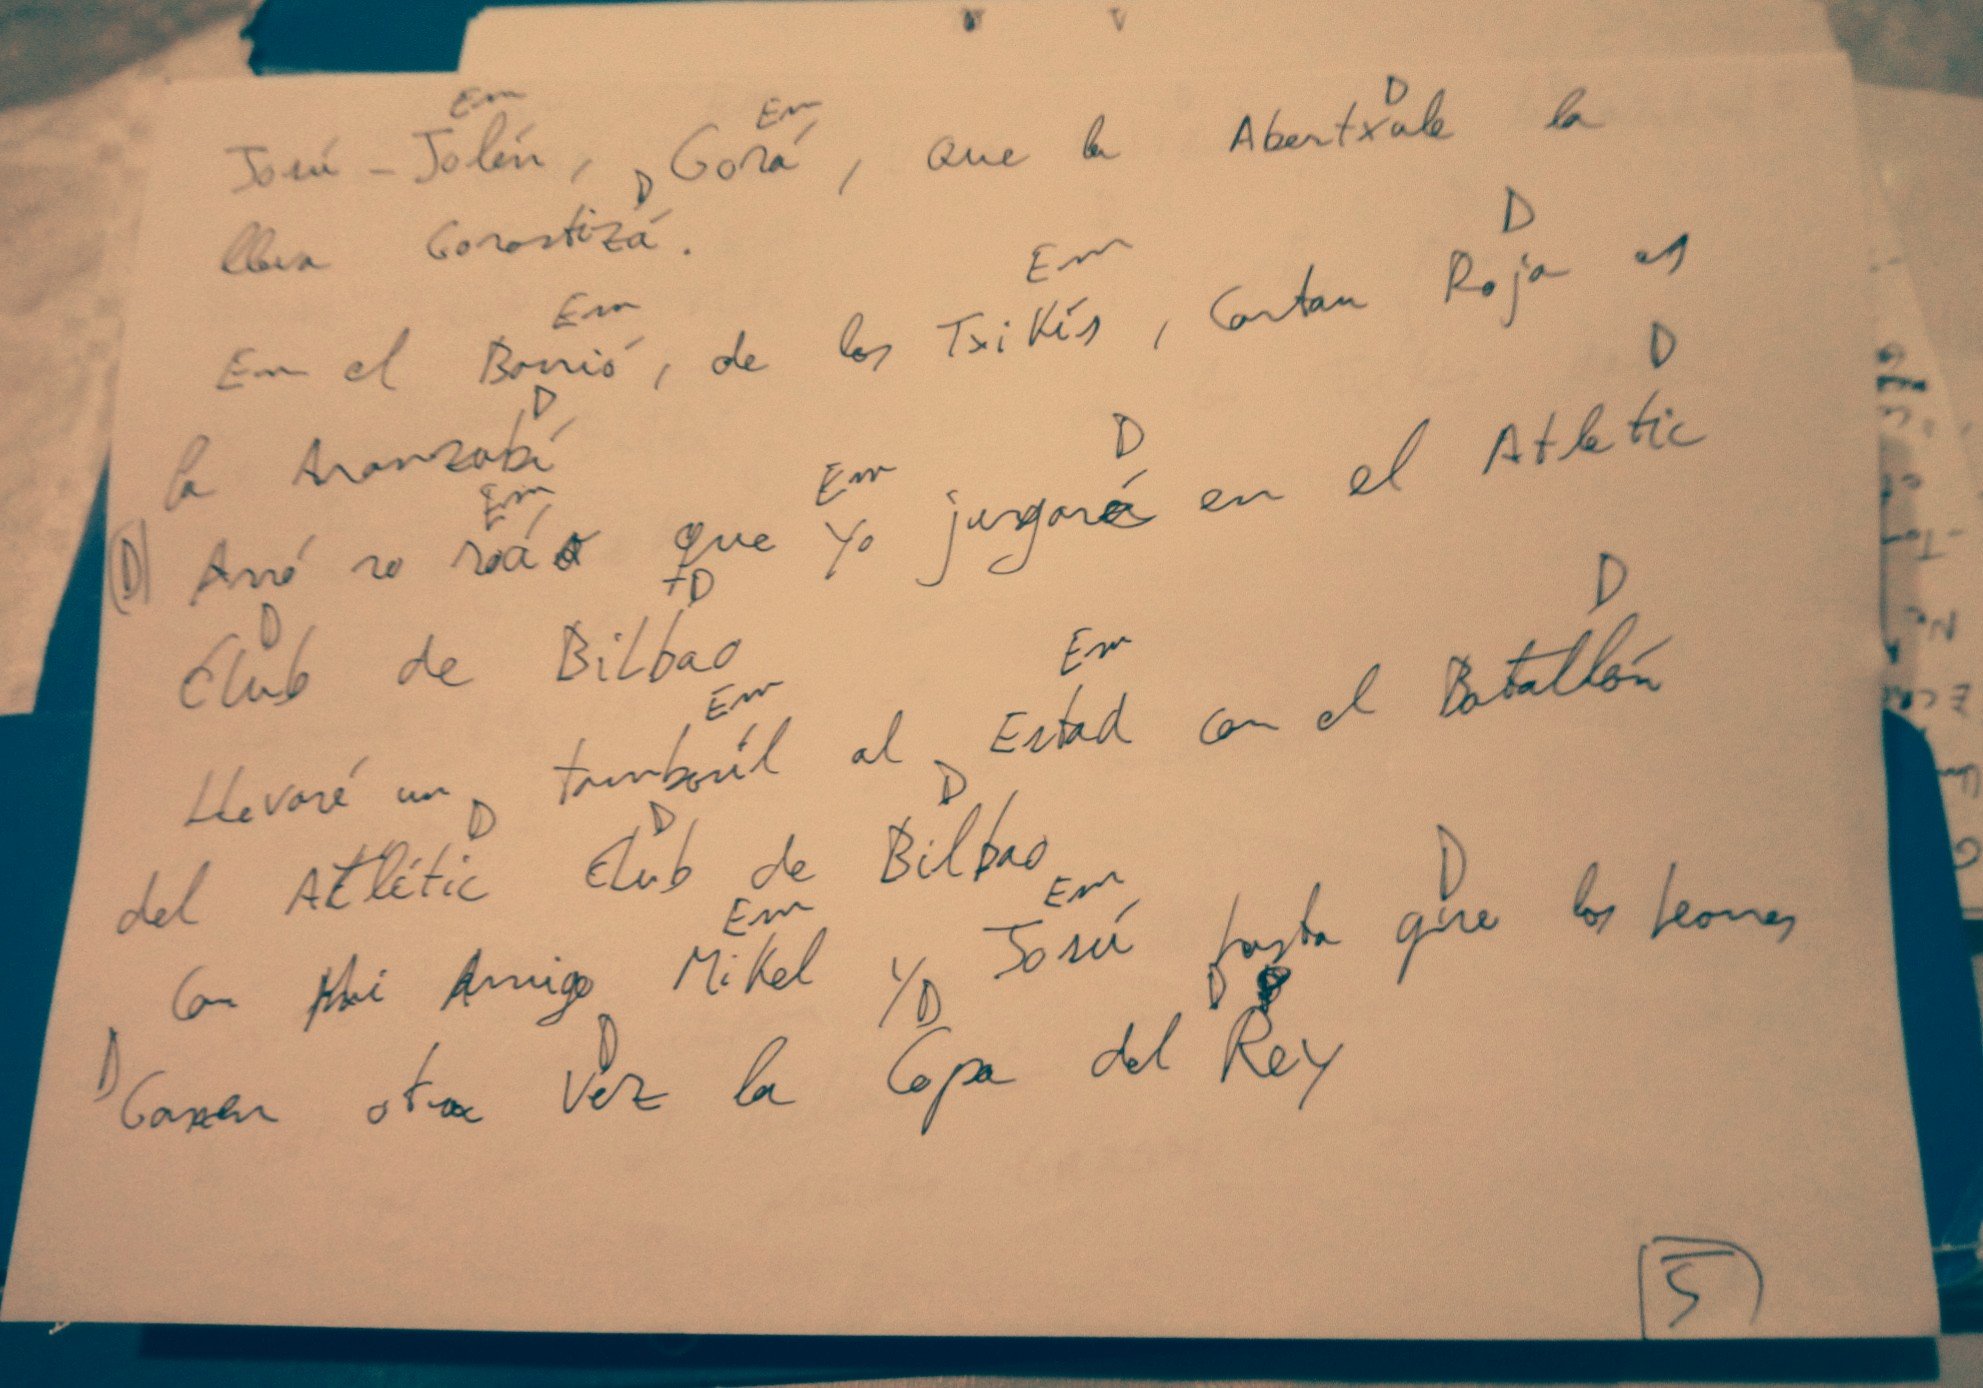 Em Em D
Josú - Jolén, Gorá, que la Abertxale la
D
lleva Gorostizá.
Em Em D
En el Barrió, de los Txikís, Cortan Roja es
D
la Aranzabí
Em Em D D
(D) Arró ro roá que yo jurgaré en el Atletic
D +D
Club de Bilbao
Em Em D
Llevaré un tamboríl al Estad con el Batallón
D D D
del Atlétic Club de Bilbao
Em Em D
Con Mi Amigo Mikel y Josú hasta que los Leones
D D D D
Ganen otra Vez la Copa del Rey
5